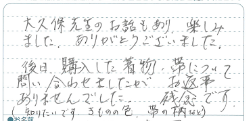 大久保先生のお話もあり 楽しみ
ました。ありがとうございました。
後日、購入した着物、帯について
問い合わせましたが お返事
ありませんでした。 残念です。
(知りたいです。きものの色、帯の柄など)
●お名前